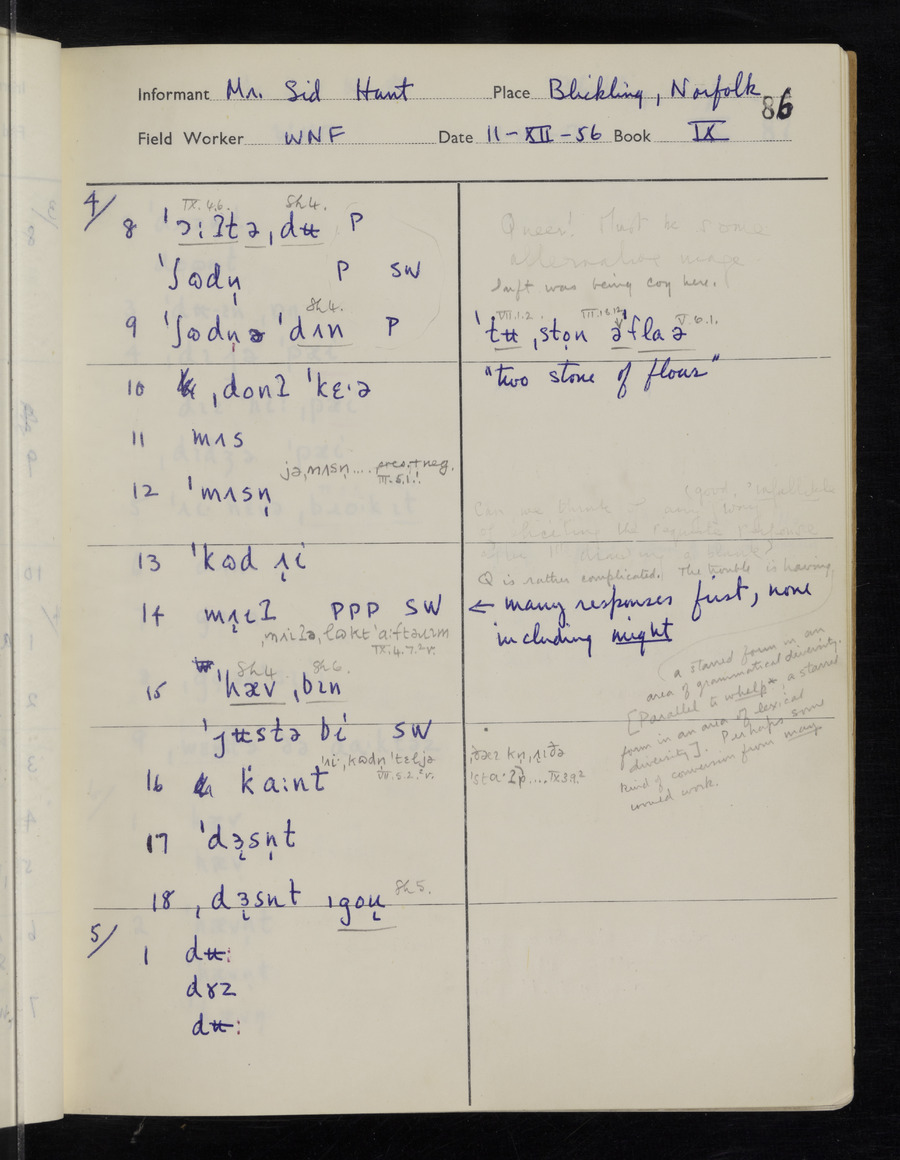 Informant Mr. Sid Hunt Place Blickling, Norfolk
86
Field Worker WNF Date 11-XII-56 Book IX
4/
IX.4.6. Sh4.
8 ˈɔːʔtə ˌdʉ P
ˈʃɷdn̩ P SW
Sh4.
9 ˈʃɷdn̩ə ˈdʌn P
10 ˌdonʔ ˈkɛˑə
11 mʌs
jə mʌsn̩.... pres.+neg.
III.5.1!
12 ˈmʌsn̩
13 ˈkɷd
14 PPP SW
IX.4.7.²v.
Sh4 Sh6.
15 ˈhæv ˌbɪn
ˈjʉstə bi SW
VII.5.2.²v.
16 kaːnt
17 ˈdɜ̨sn̩t
18 ˌdɜ̨snt ˌgou Sh5.
5/
1 dʉː
dɤz
dʉː
Queer! Must be some
alternative usage.
Inft was being coy here.
VII.1.2. V.6.1.
ˈtʉ ˌston ə ˈflaə
"two stone of flour"
Can we think of any way (good, "infallible
of eliciting the requisite response
Q is rather complicated. The trouble is having
← many responses first, none
including might
a starred form in an
area of grammatical diversity.
[Parallel to whelp*, a starred
form in an area of lexical
diversity]. Perhaps some
kind of conversion from may
would work.
IX.3.9.²